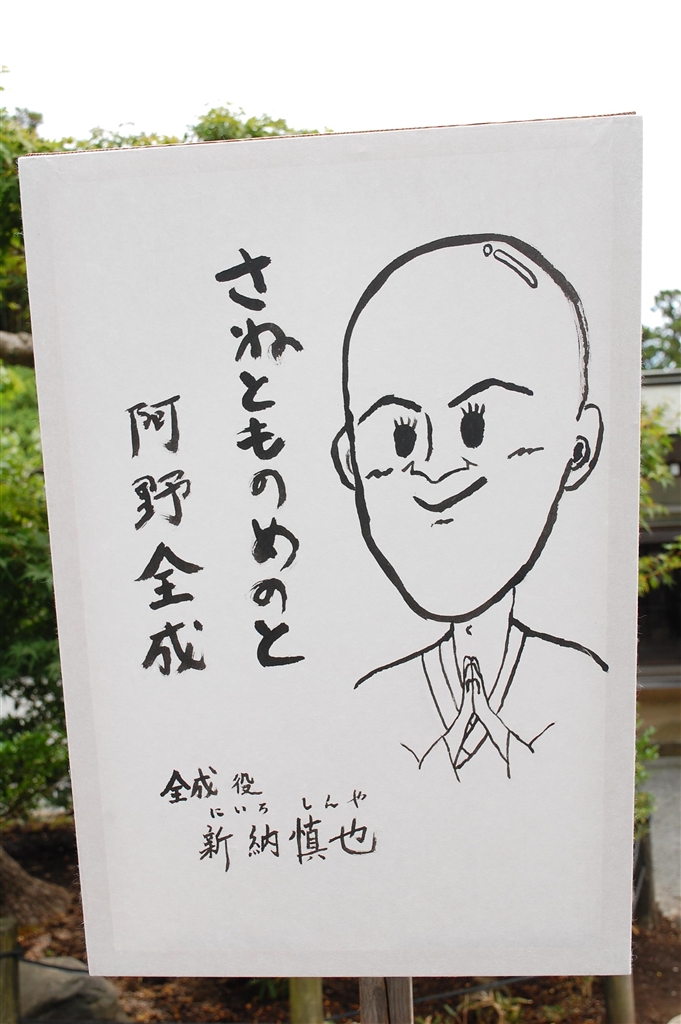 さねとものめのと
阿野全成
全成役
にいろ しんや
新納慎也